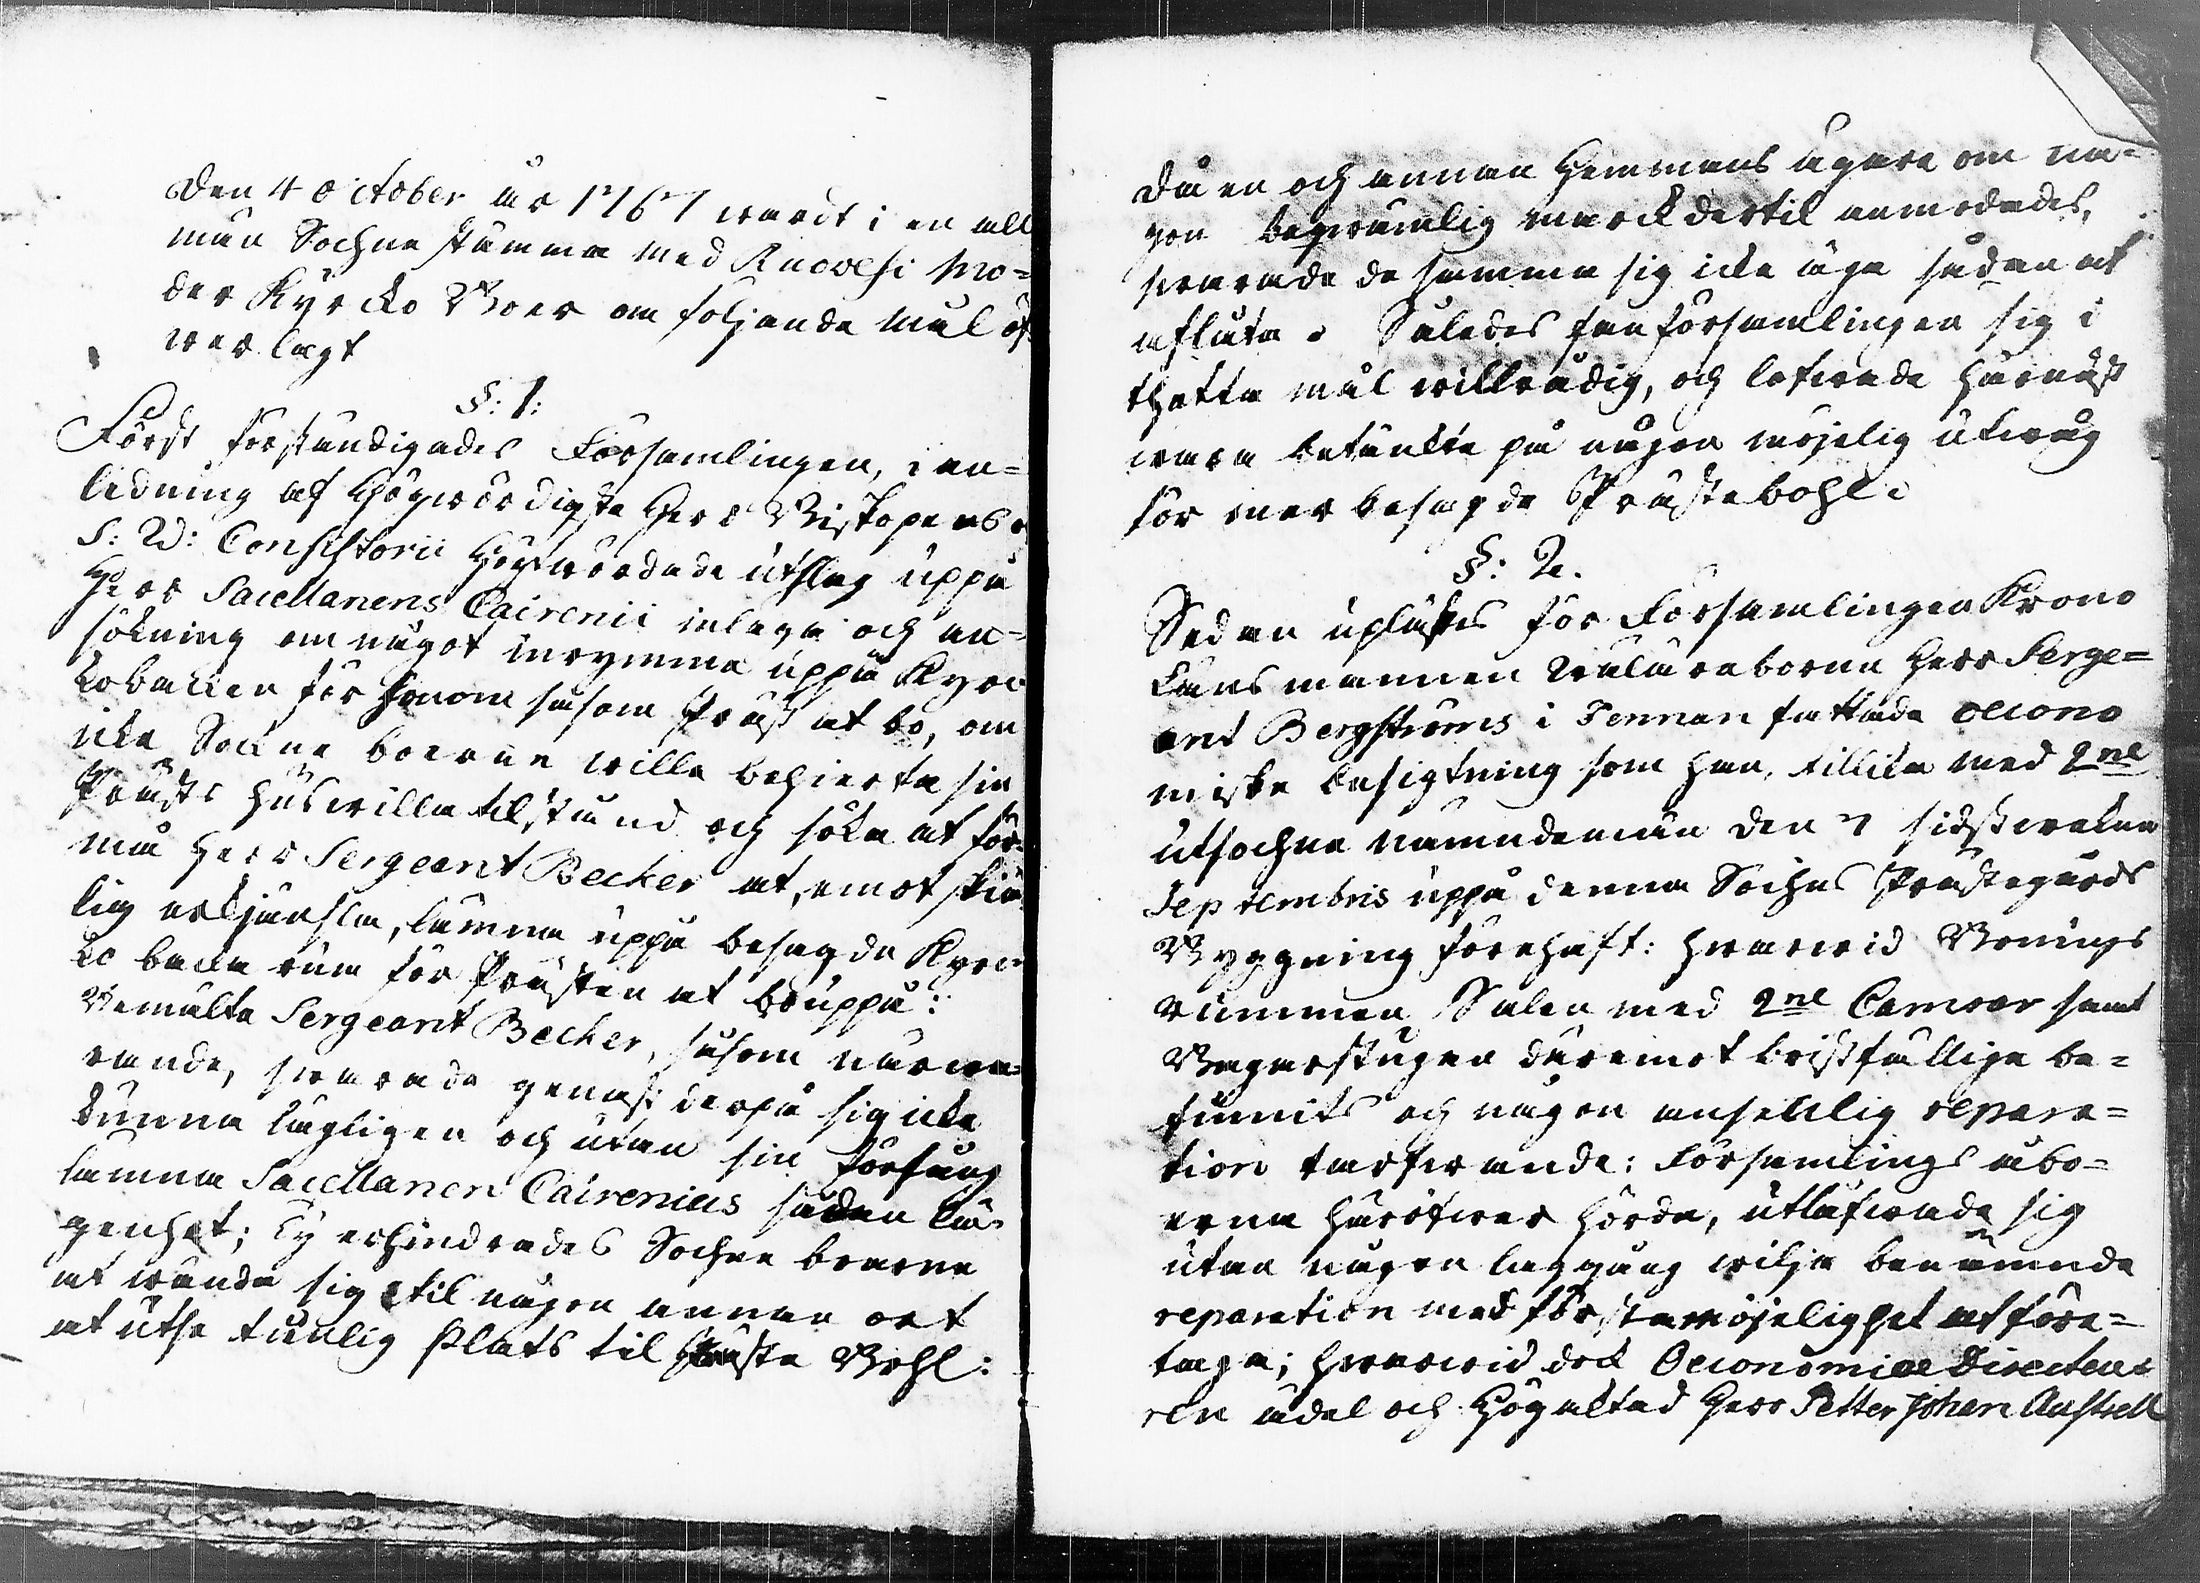 Den 4 October år 1767 wardt i en all
män Sochne stämma med Ruovesi Mo-
der Kyrcko Boer om följande mål öf
werlagt
§: 1:
Först förständigades Församlingen, i an-
ledning af Högwördigste Herr Biskopens o
S: W: Consistorii Högtwördade utslag uppå
Herr Sacellanens Cairenii inlaga och an-
sökning om något inrymme uppå Kyrc
kobacken för honom såsom Präst at bo, om
icke Sockne boerne wille behierta sin
Prästs huswilla tilstånd och söka at för-
må Herr Sergeant Becker at, emot skiä
lig erkjänsla, lämna uppå besagde Kyrc
ko backe rum för Prästen at bo uppå:
Bemälte Sergeant Becker, såsom närwa-
rande, swarade genast derpå sig icke
kunna lägligen och utan sin förfång
lämna Sacellanen Cairenius sådan lä-
genhet; Ty erhindrades Sochne boerne
at wända sig til någon annan ort
at utse tienlig Plats til Präste Bohl:
Då en och annan Hemmans ägare om nå-
gon beqwämlig marck dertil anmodades,
swarade de samma sig icke äga sådan at
aflåta. Således fan församlingen sig i
thetta mål willrådig, och lofwade härnäst
wara betänckte på någon möjelig utwäg
för mer besagde Prästebohl.
§: 2.
Sedan uplästes för Församlingen Krono
Länsmannen Wäläreborne Herr Serge-
ant Bergströms i Fennan fattade oecono
miske besigtning som han, tillika med 2ne
utsochne nämndemän den 7 sidstwekne
Septembris uppå denna Sochns Prästegårds
Byggning förehaft: hwarwid Bonings
rummen Salen med 2ne Camrar samt
Bagarstugen däremot bristfällige be-
funnits och någon ansenlig repara-
tion tarfwande: Församlings åbo-
erne häröfwer hörde, utläfwade sig
utan någon laggång wilja benämnde
reparation med första möjelighet at före-
taga; hwarwid dock Oeconomiae Directeu-
ren ädel och Högaktad Herr Petter Johan Austrell